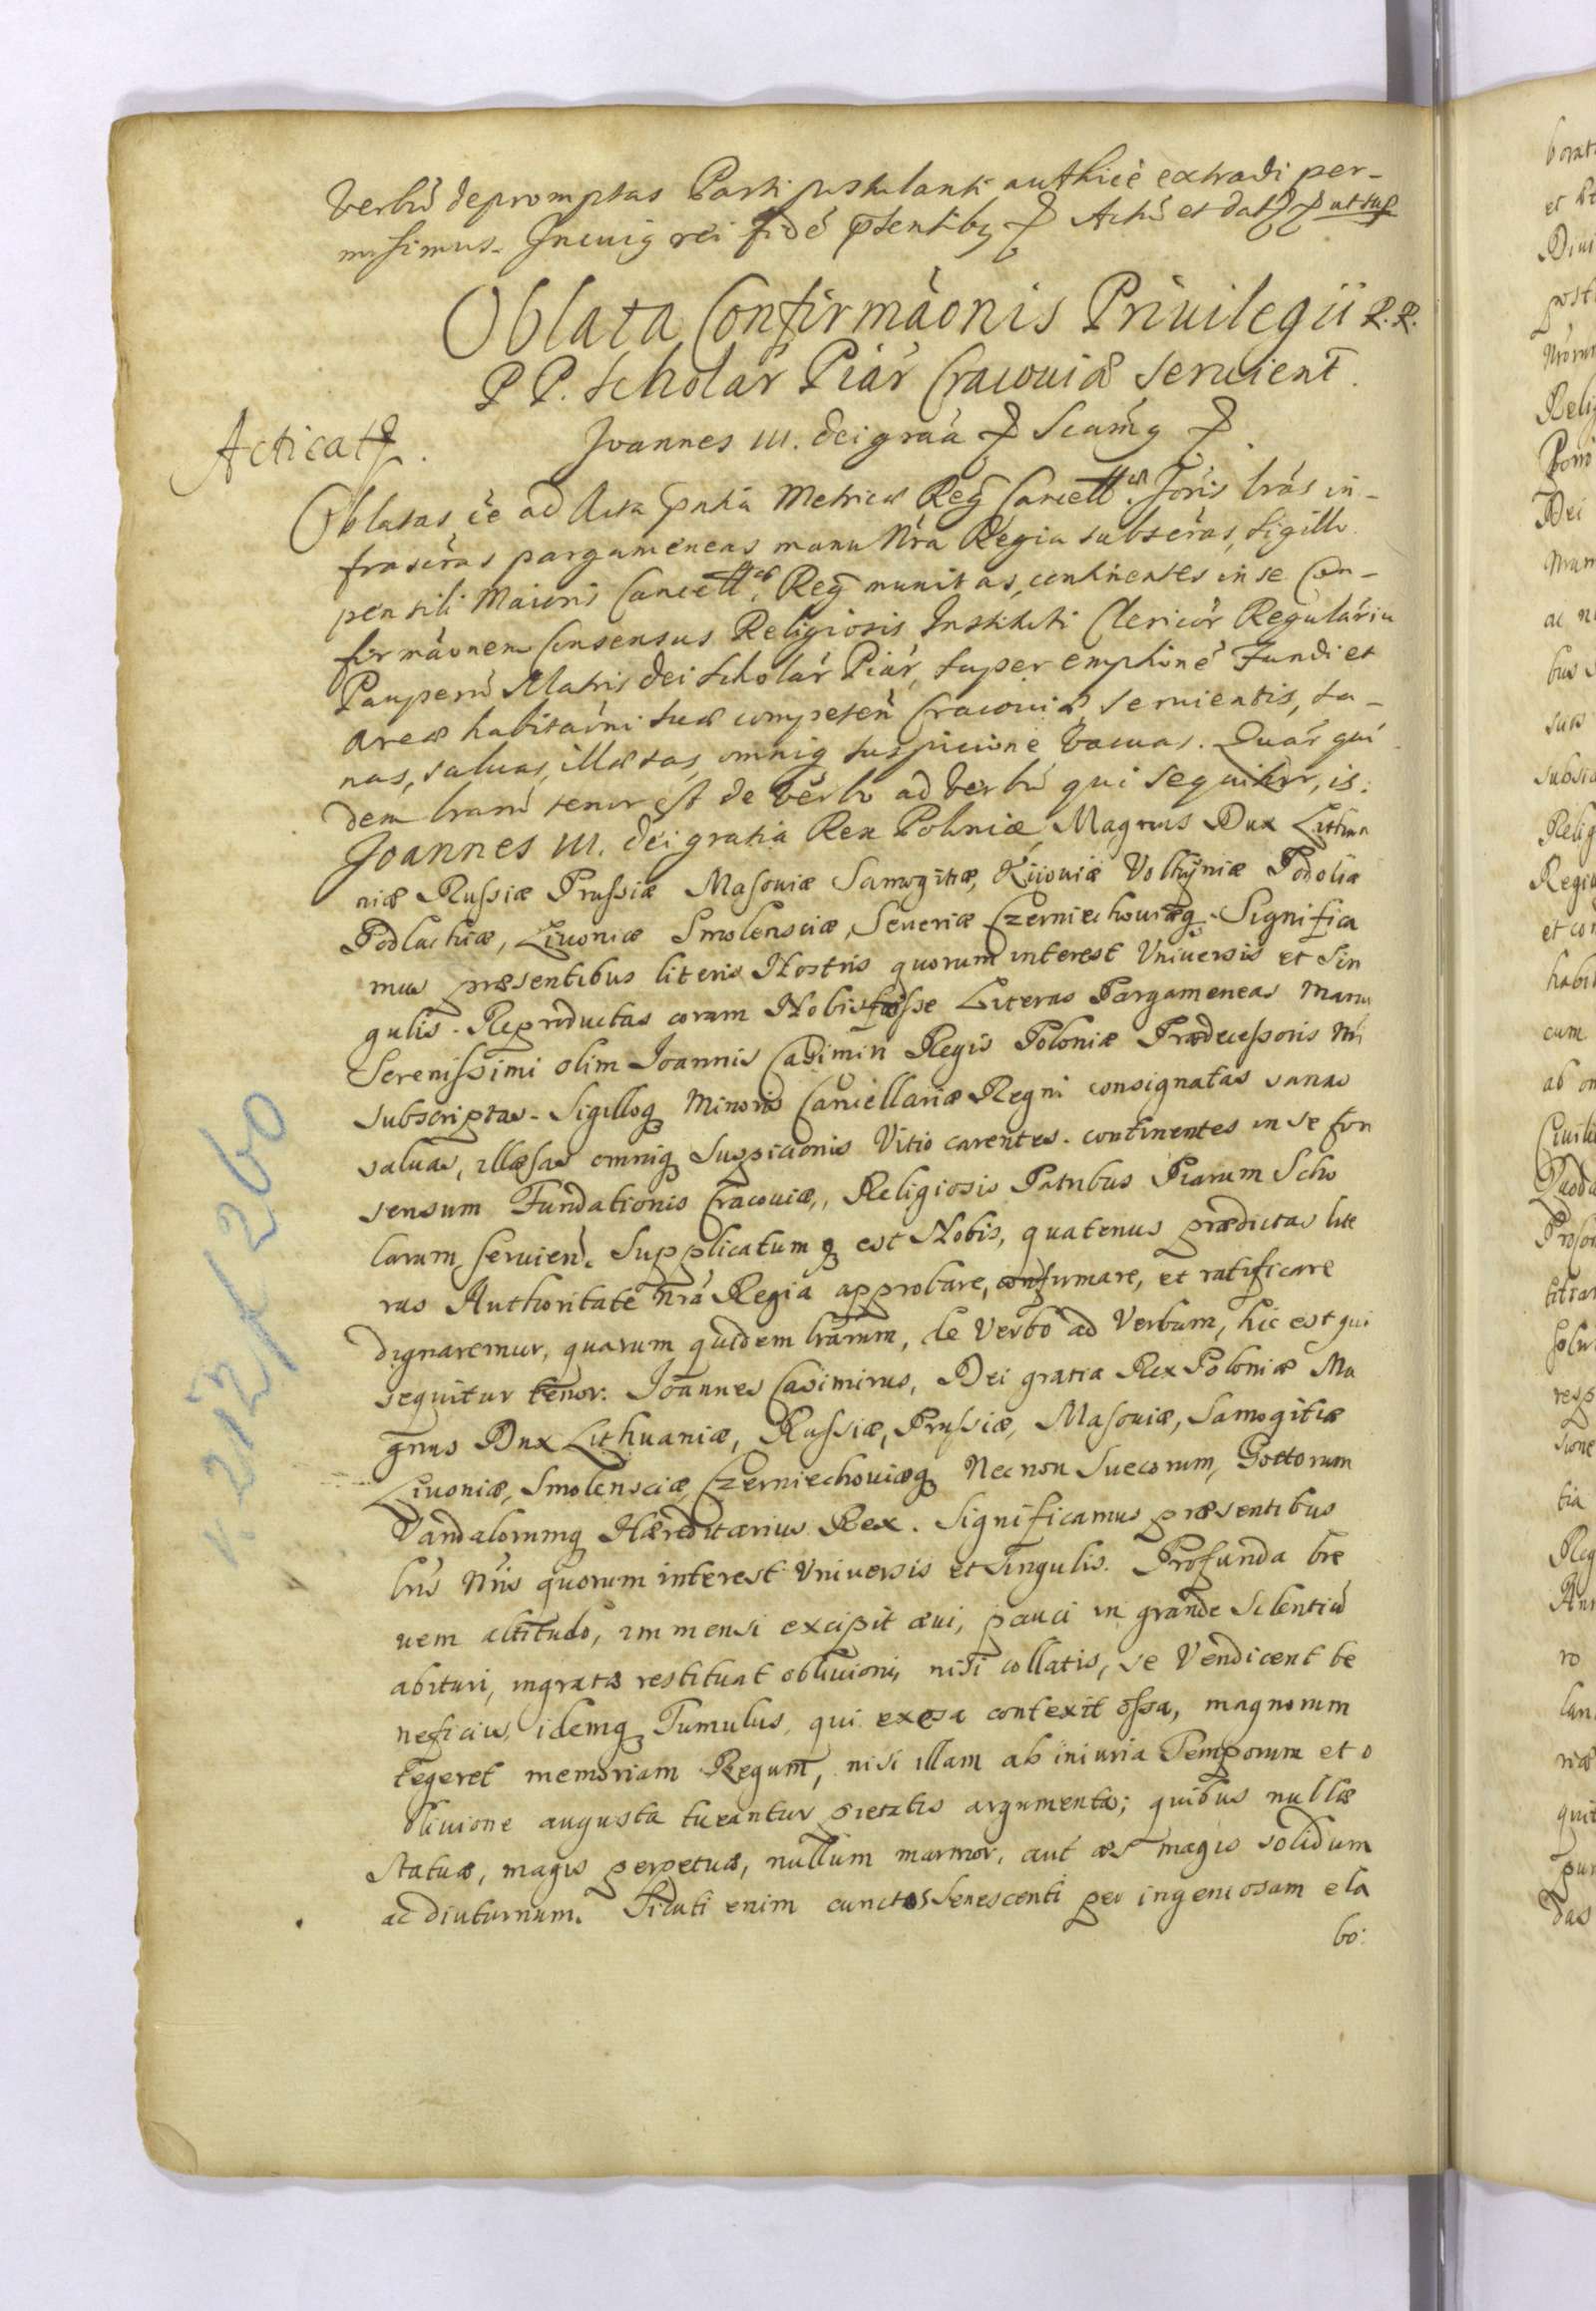 Verbũ depromptas Parti postulanti authice extradi per-
misimus. Incuiq rei fidé pñtentibq Actũ et dat ut sup
Oblata Confirmãonis Priuilegii R.R.
PP. Scholar Piar Cracouiæ seruient.
Joannes III. dei graã Scamq
Acticat.
Oblatas ee ad Acta pñtia Metrices Reg Cancell. Foris lras in-
frascras pargameneas manu Nra Regia subscras, sigillo
pensili Maioris Cancell. Reg munitas, continentes in se Con-
firmãonem Consensus Religiosis Instituti Clericor Regulariu
Pauperũ Matris Dei Scholar Piar, super emphine Fundi et
areæ habitaõni suæ competeñ Cracouiæ seruientis, sa-
nas, saluas, illæsas, omniq suspicione vacuas. Quar qui
dem lrarũ tenor est de verbo ad verbũ qui sequitur, is:
Joannes III. dei gratia Rex Poloniæ, Magnus Dux Lithua
niæ Russiæ Prussiæ Masouiæ Samogitiæ, Kijouiæ Volhyniæ Podoliæ
Podlachiæ, Liuoniæ Smolensciæ, Seueriæ Czerniechouiæq. Significa
mus præsentibus literis Nostris quorum interest Vniuersis et Sin
gulis. Reproductas coram Nobis fuisse Literas Pargameneas manu
Serenissimi olim Joannis Casimiri Regis Poloniæ Prædecessoris Nri
subscriptas. Sigilloq Minoris Cancellariæ Regni consignatas sanas
saluas, illæsas omniq Suspicionis Vitio carentes. continentes in se Con
sensum Fundationis Cracouiæ, Religiosis Patribus Piarum Scho
larum, seruien. Supplicatumq est Nobis, quatenus prædictas lite
ras Authoritate Nrã Regia approbare, confirmare, et ratificare
dignaremur, quarum quidem lrarum, de Verbo ad Verbum, hic est qui
sequitur tenor: Joannes Casimirus, Dei gratia Rex Poloniæ Ma
gnus Dux Lithuaniæ, Russiæ, Prussiæ, Masouiæ, Samogitiæ
Liuoniæ, Smolensciæ, Czerniechouiæq Necnon Suecorum, Gottorum
Vandalorumq Hæreditarius Rex. Significamus præsentibus
lris Nris quorum interest Vniuersis et Singulis. Profunda bre
uem altitudo, immensi excipit æui, pauci in grande Silentiũ
abituri, ingratæ restituat obliuioni, nisi collatis, se Vendicent be
neficiis, idemq Tumulus, qui exesa contexit ossa, magnorum
tegeret memoriam Regum, nisi illam ab iniuria Temporum et o
bliuione augusta tueantur pietatis argumenta; quibus nullæ
Statuæ, magis perpetuæ, nullum marmor, aut æs magis solidum
ac diuturnum. Sicuti enim cunctos Senescenti per ingeniosam ela
bo: